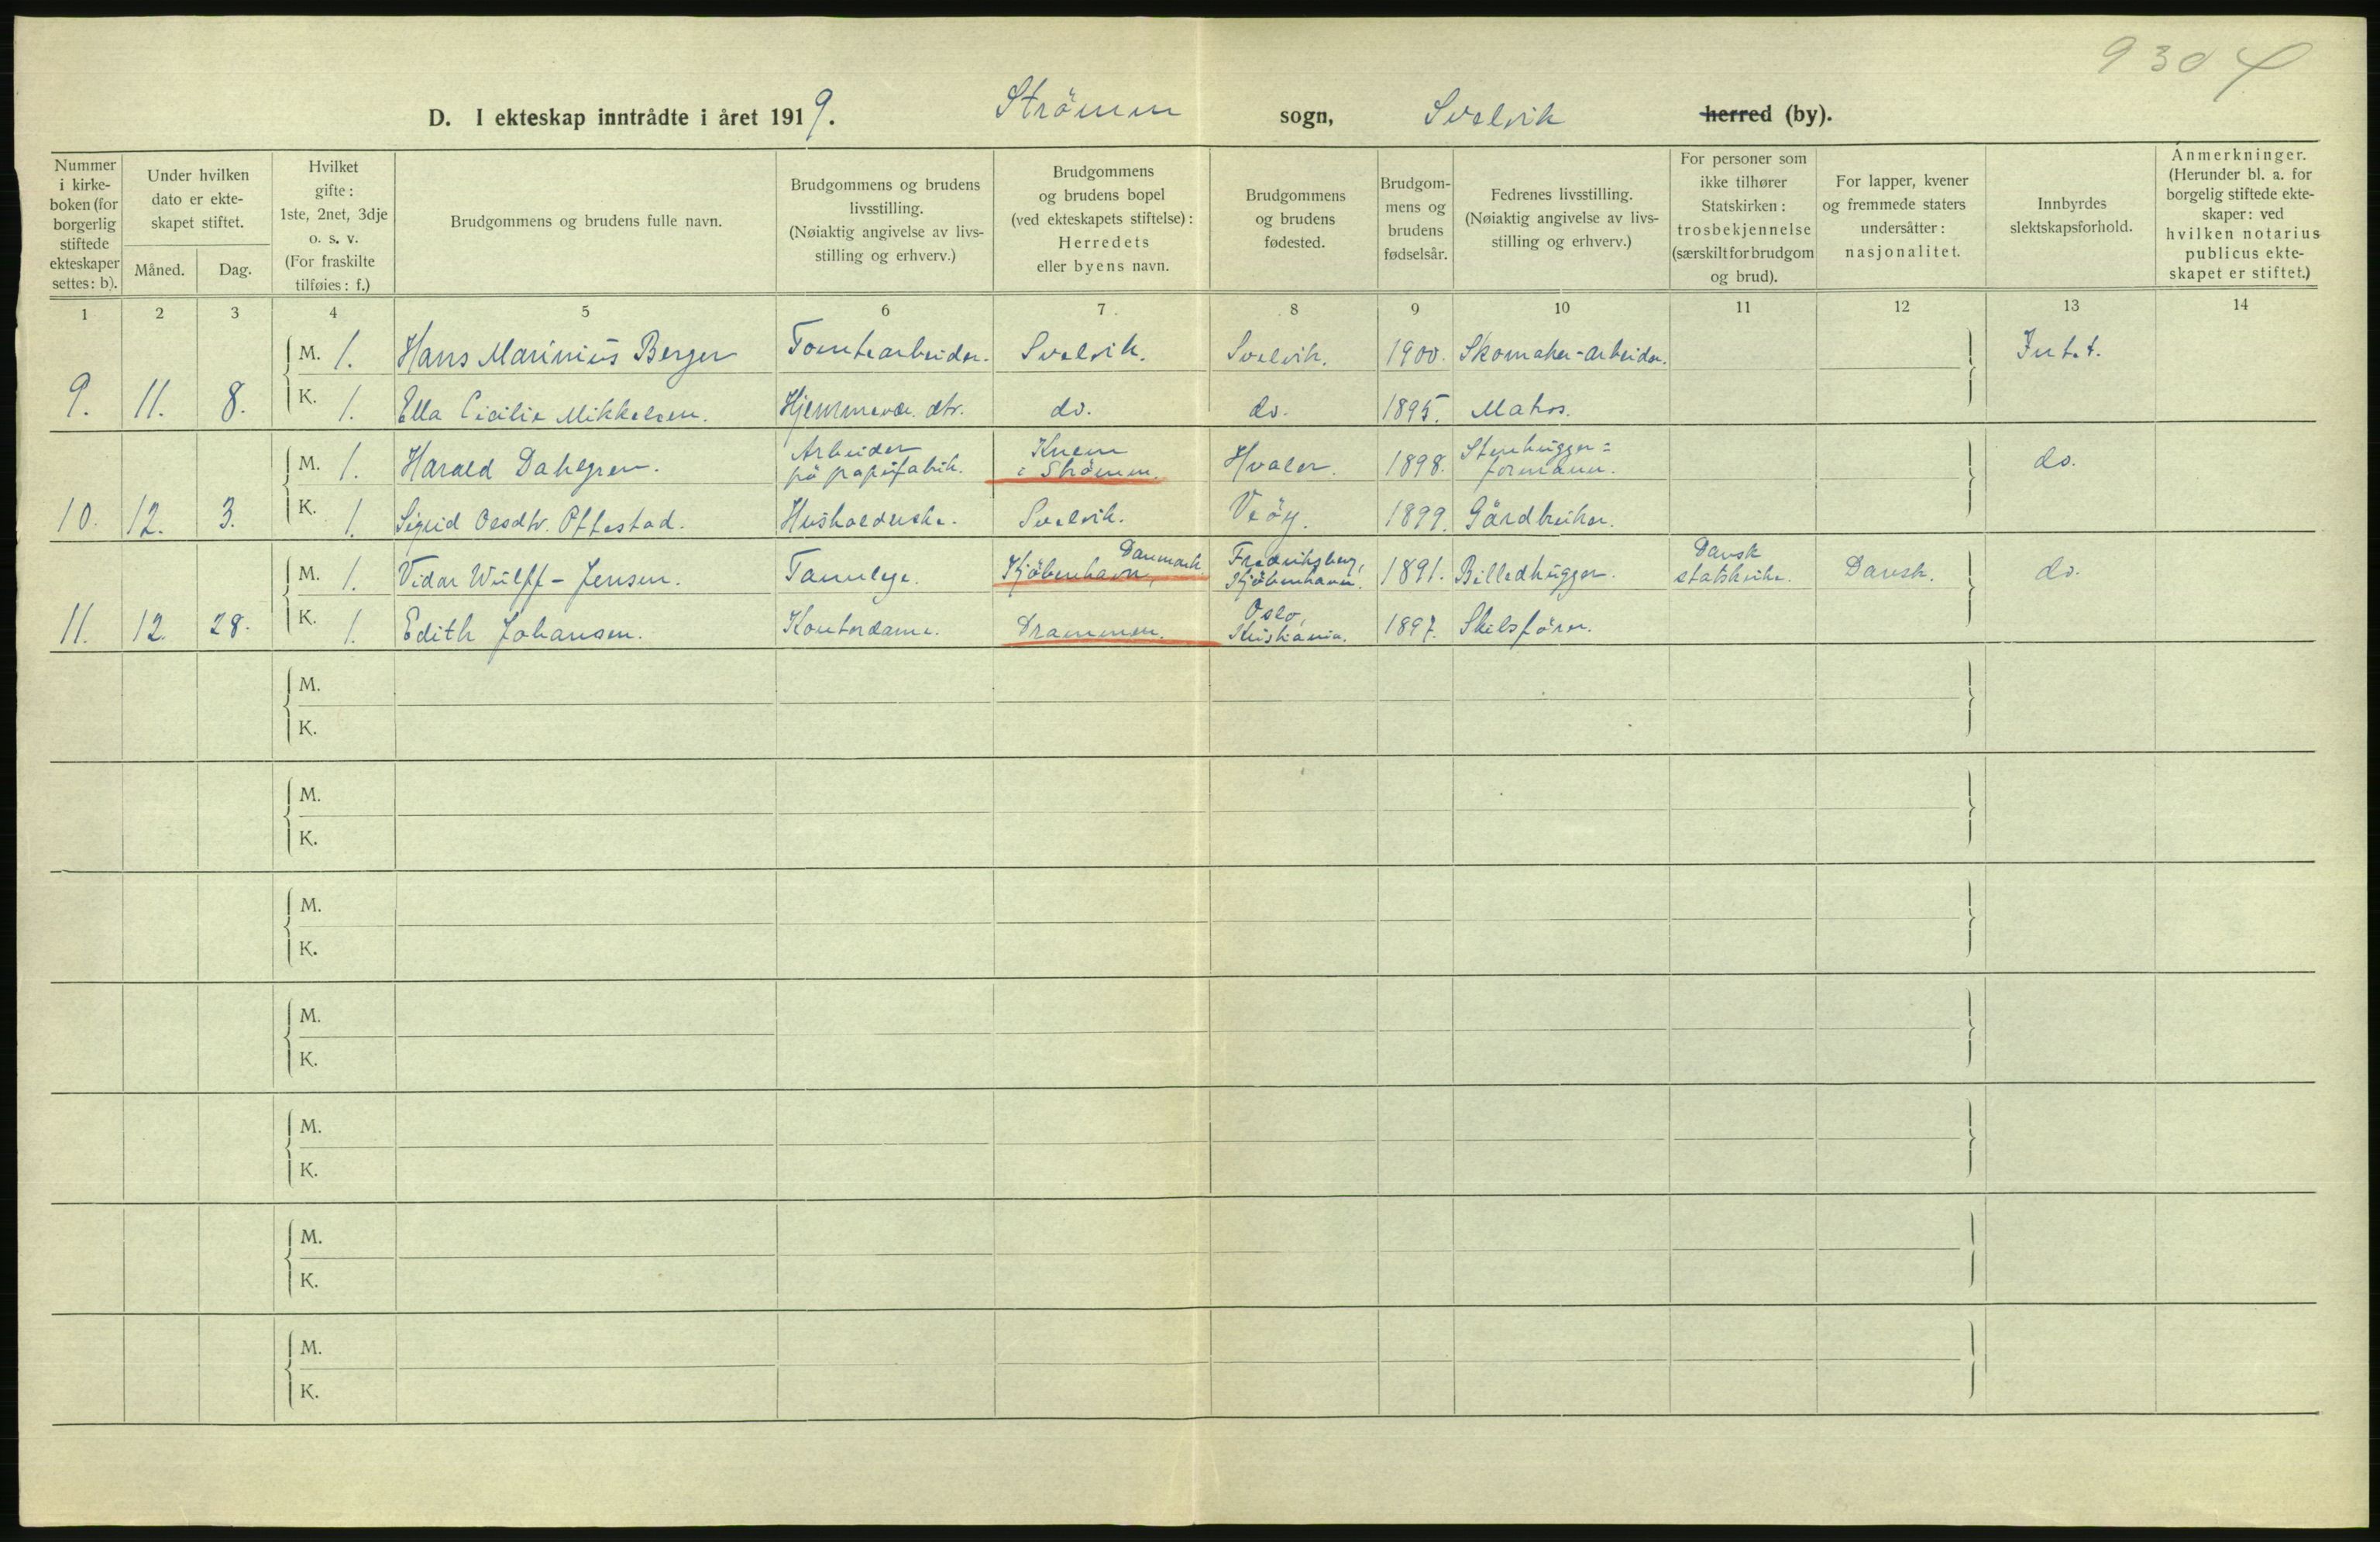 9304
D. I ekteskap inntrådte i året 1919. Strömm sogn, Svelvik herred (by).
Nummer i kirkeboken (for borgerlig stiftede ekteskaper settes: b).
Under hvilken dato er ekteskapet stiftet.
Måned. Dag.
Hvilket gifte: 1ste, 2net, 3dje o. s. v. (For fraskilte tilføies: f.)
Brudgommens og brudens fulle navn.
Brudgommens og brudens livsstilling. (Nøiaktig angivelse av livsstilling og erhverv.)
Brudgommens og brudens bopel (ved ekteskapets stiftelse): Herredets eller byens navn.
Brudgommens og brudens fødested.
Brudgommens og brudens fødselsår.
Fedrenes livsstilling. (Nøiaktig angivelse av livsstilling og erhverv.)
For personer som ikke tilhører Statskirken: trosbekjennelse (særskilt for brudgom og brud).
For lapper, kvener og fremmede staters undersåtter: nasjonalitet.
Innbyrdes slektskapsforhold.
Anmerkninger. (Herunder bl. a. for borgerlig stiftede ekteskaper: ved hvilken notarius publicus ekteskapet er stiftet.)
1 2 3 4 5 6 7 8 9 10 11 12 13 14
M. 1. Hans Marinius Berger Tomtearbeider. Svelvik. Svelvik. 1900. Skomaker-arbeider. Intet.
9. 11. 8. K. 1. Ella Cicilie Mikkelsen. Hjemmevær. dtr. do. do. 1895. Matros.
M. 1. Harald Dahlgren. Arbeider på papirfabrik. Knem i Strömm. Hvaler. 1898. Stenhugger=formann. do.
10. 12. 3. K. 1. Sigrid Olsdtr. Ottestad. Husholderske. Svelvik. Veöy. 1899. Gårdbruker.
M. 1. Vidar Wülff-Jensen. Tannlege. Kjöbenhavn, Danmark Fredriksberg, Kjöbenhavn. 1891. Billedhugger. Dansk statskirke. Dansk. do.
11. 12. 28. K. 1. Edith Johansen. Kontordame. Drammen. Oslo, Kristiania. 1897. Skibsförer.
M.
K.
M.
K.
M.
K.
M.
K.
M.
K.
M.
K.
M.
K.